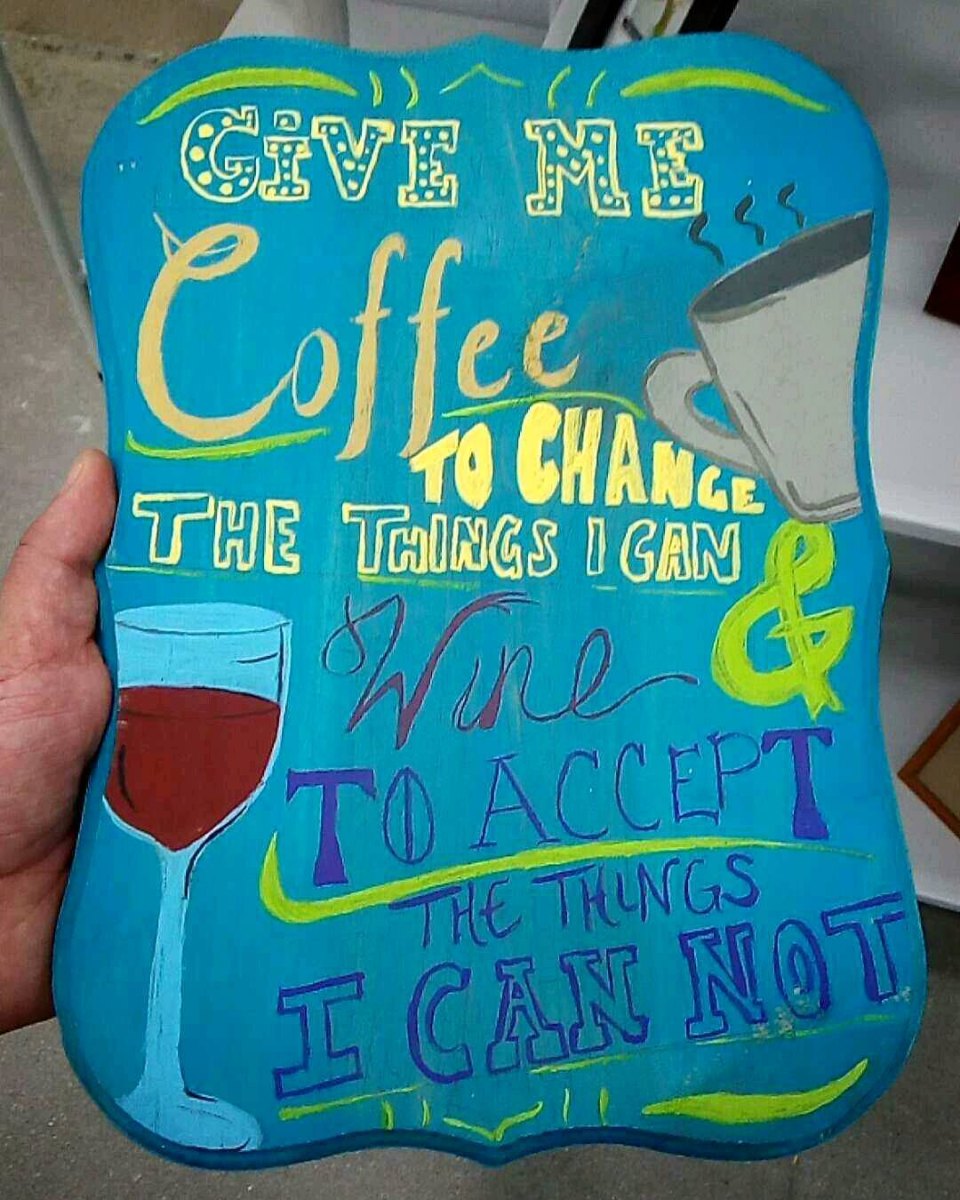 GiVE ME
Coffee
TO CHANGE
THE THINGS I CAN
&
Wine
TO ACCEPT
THE THINGS
I CAN NOT